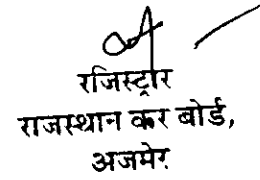 रजिस्ट्रार
राजस्थान कर बोर्ड,
अजमेर